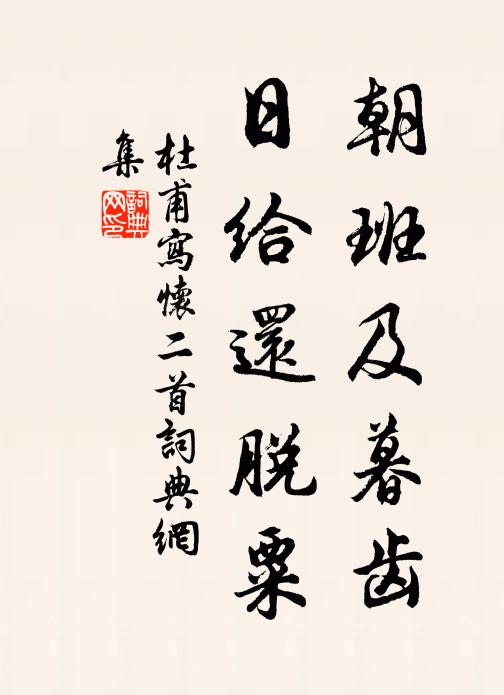 朝班及暮齿
日给還脱粟
杜甫寫懷二首詞典網
集
詞典
网印